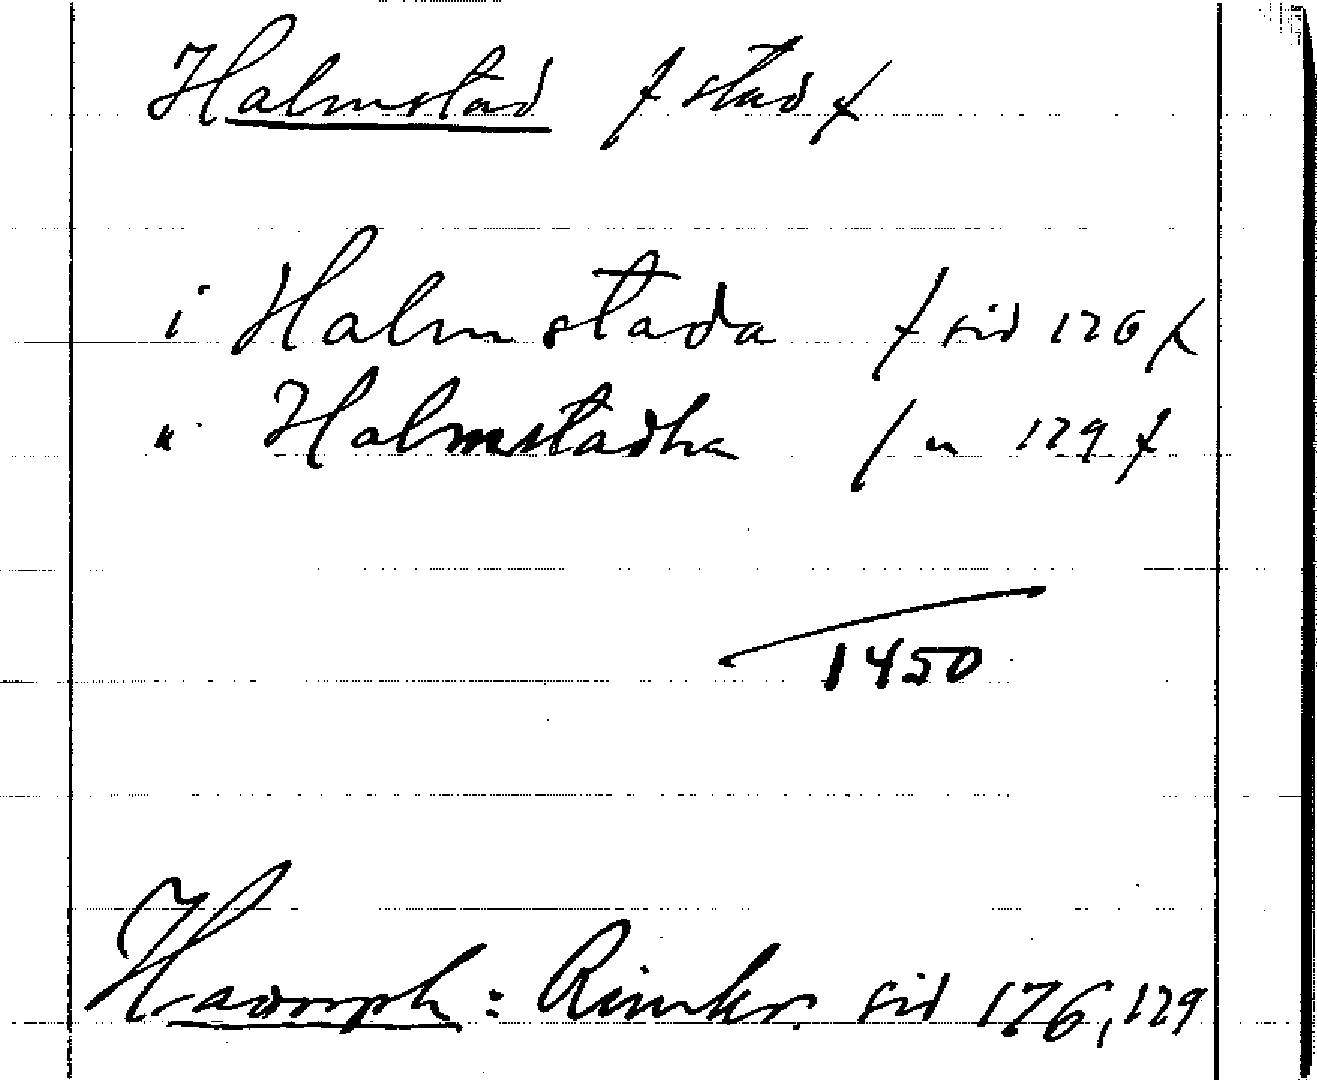 Halmstad / stad /
i Halmstada / sid 126 /
" Halmstadha / " 129 /
1450
Hadorph: Rimkr. sid 126, 129